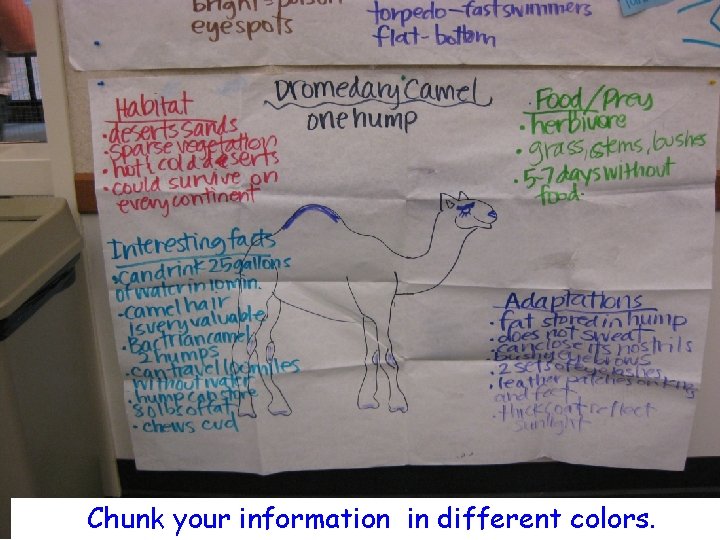 bright = poison
eyespots
torpedo-fast swimmers
flat-bottom
Dromedary Camel
one hump
Habitat
• deserts sands
• sparse vegetation
• hot & cold deserts
• could survive on
every continent
Food/Prey
• herbivore
• grass, stems, bushes
• 5-7 days without
food.
Interesting facts
• can drink 25 gallons
of water in 10 min.
• camel hair
is very valuable
• Bactrian camel
2 humps
• can travel 100 miles
without water
• hump can store
80 lbs of fat
• chews cud
Adaptations
• fat stored in hump
• does not sweat
• can close its nostrils
• bushy eyebrows
• 2 sets of eyelashes
• leather patches on knees
and feet
• thick coat reflect
sunlight
Chunk your information in different colors.